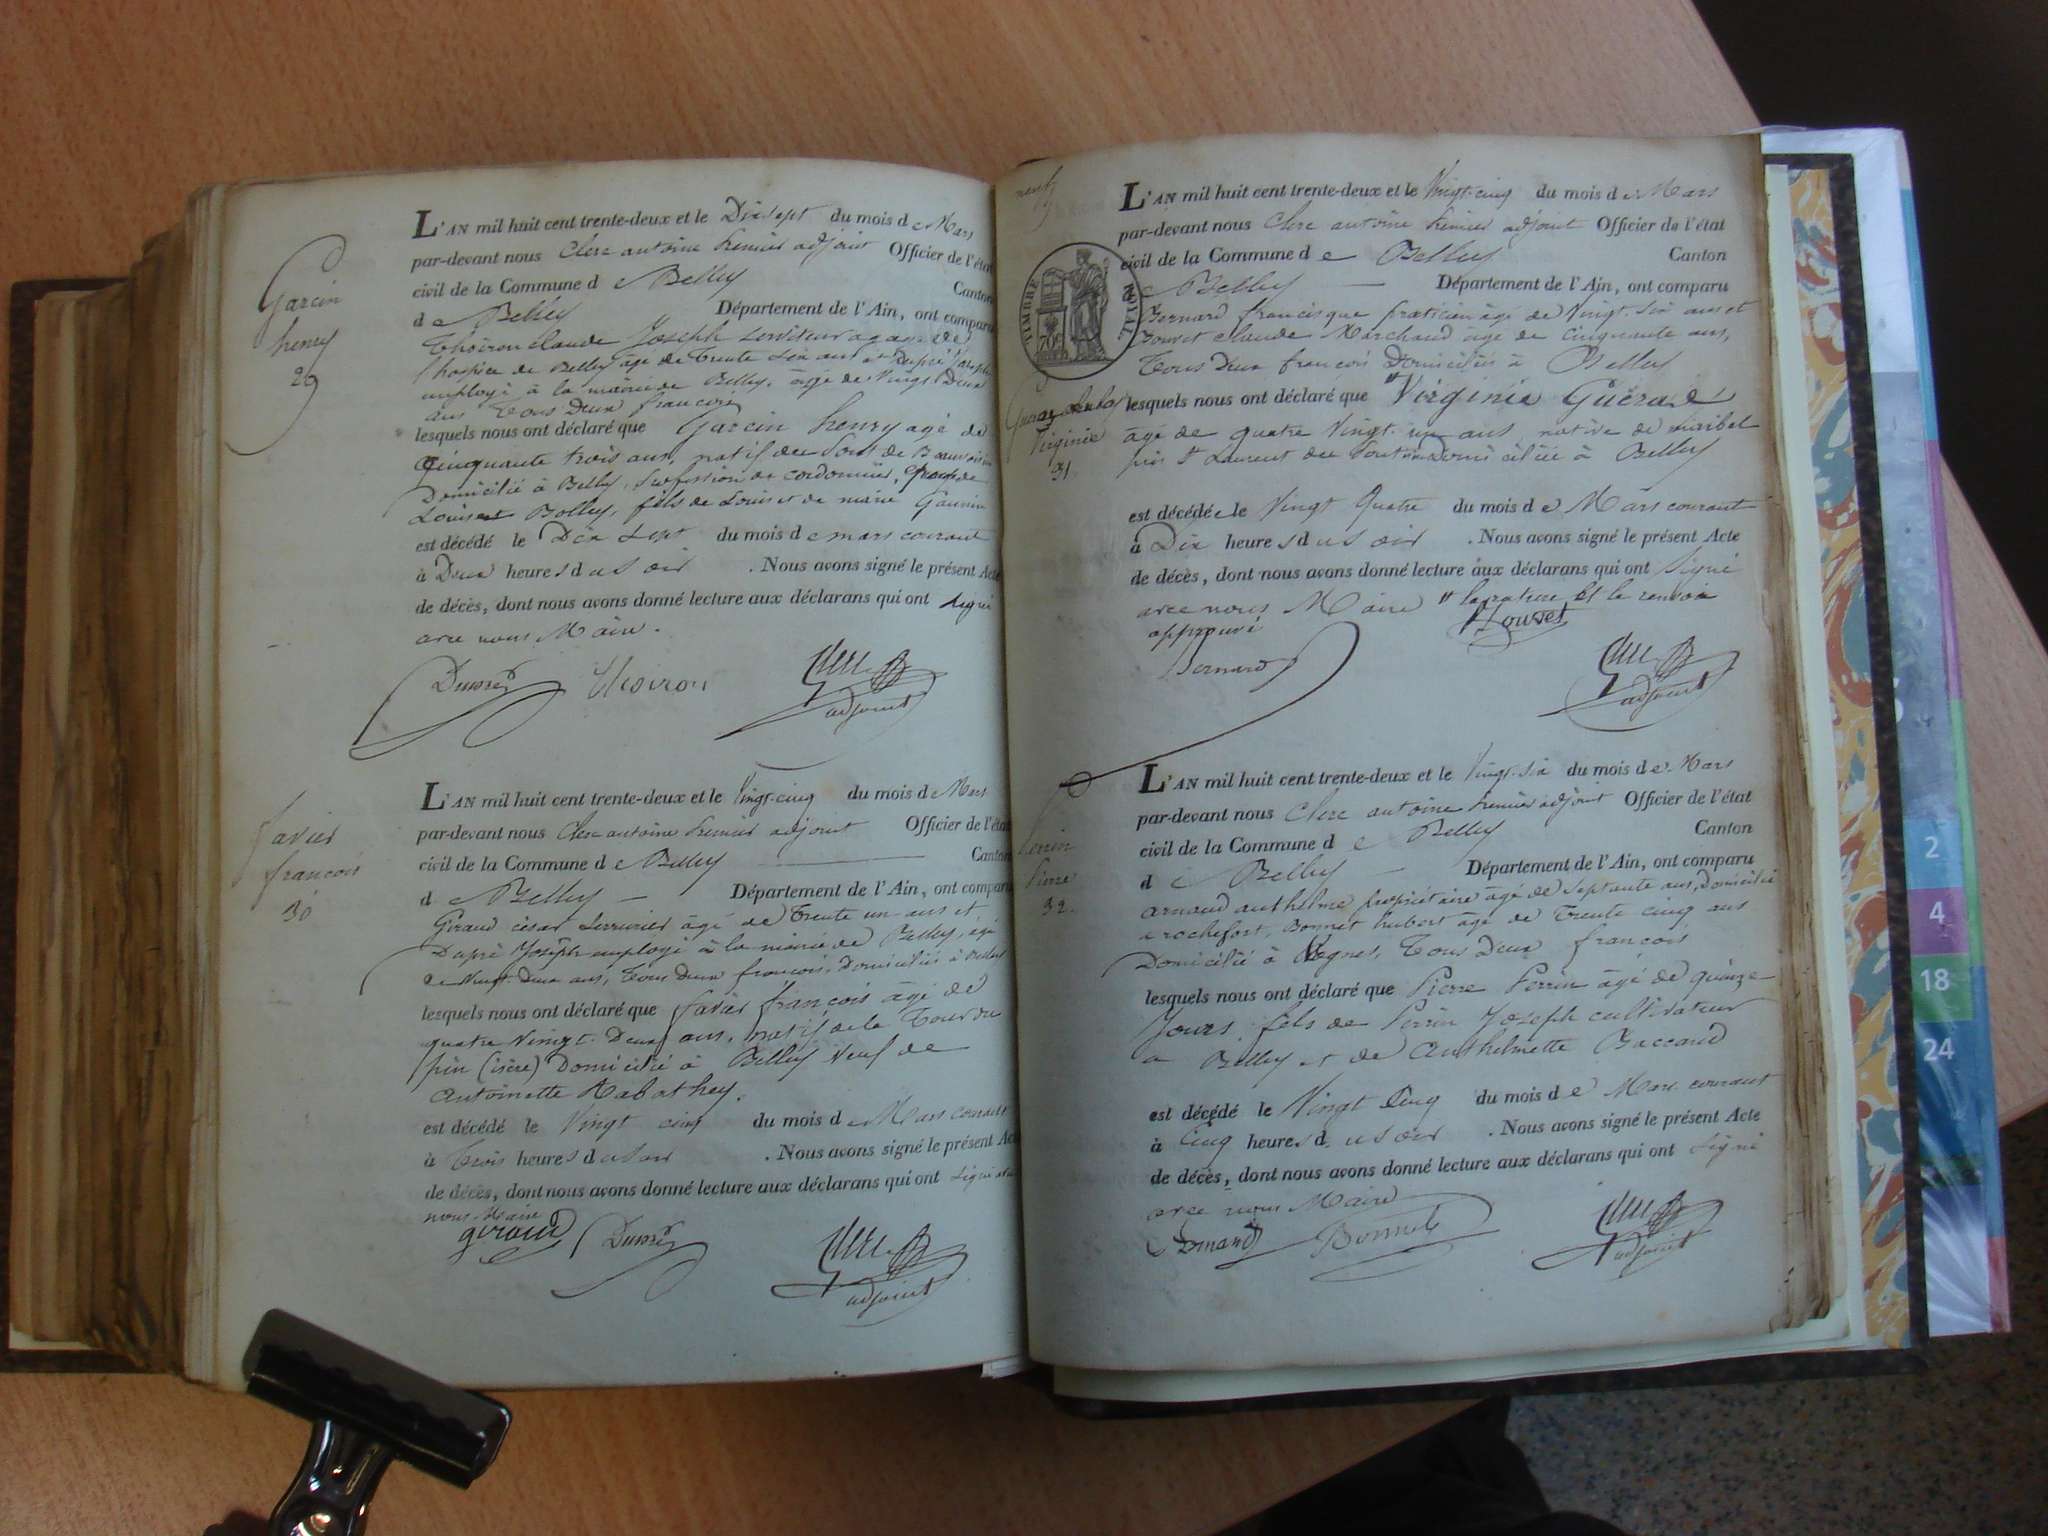 Garcin
henry
29
L'AN mil huit cent trente-deux et le Dix sept du mois de Mars
par-devant nous Clerc antoine premier adjoint Officier de l'état
civil de la Commune de Belley Canton
de Belley Département de l'Ain, ont comparu
Thoiron Claude Joseph serviteur de
l'hospice de Belley âgé de Trente six ans et Dupré Joseph
employé à la mairie de Belley, âgé de Vingt Deux
ans Tous Deux francois
lesquels nous ont déclaré que Garcin henry agé de
Cinquante trois ans, natif du Pont de Beauvoisin
Domicilié à Belley, profession de cordonnier, de
Louise Bolley, fils de Louis et de marie
est décédé le Dix Sept du mois de mars courant
à Deux heures du soir . Nous avons signé le présent Acte
de décès, dont nous avons donné lecture aux déclarans qui ont signé
avec nous Maire.
Dupré Thoiron Clerc
adjoint
favier
francois
30
L'AN mil huit cent trente-deux et le Vingt-cinq du mois de Mars
par-devant nous Clerc antoine premier adjoint Officier de l'état
civil de la Commune de Belley Canton
de Belley Département de l'Ain, ont comparu
Giraud césar serrurier âgé de Trente un ans et
Dupré Joseph employé à la mairie de Belley, âgé
de Vingt Deux ans, Tous Deux francois, Domiciliés à Belley
lesquels nous ont déclaré que favier françois âgé de
quatre Vingt Deux ans, natif de la Tour du
pin (isère) Domicilié à Belley Veuf de
Antoinette Rabathey.
est décédé le Vingt cinq du mois de Mars courant
à Trois heures du soir . Nous avons signé le présent Acte
de décès, dont nous avons donné lecture aux déclarans qui ont signé avec
nous Maire
giraud Dupré Clerc
adjoint
neuf
TIMBRE ROYAL
70c
Virginie
31
L'AN mil huit cent trente-deux et le Vingt-cinq du mois de Mars
par-devant nous Clerc antoine premier adjoint Officier de l'état
civil de la Commune de Belley Canton
de Belley Département de l'Ain, ont comparu
Bernard francisque praticien âgé de Vingt six ans et
Louvet Claude Marchand âgé de cinquante ans,
Tous Deux francois Domiciliés à Belley
lesquels nous ont déclaré que Virginie
âgé de quatre Vingt un ans native de miribel
près St Laurent du Pont Domiciliée à Belley
est décédée le Vingt Quatre du mois de Mars courant
à Dix heures du soir . Nous avons signé le présent Acte
de décès, dont nous avons donné lecture aux déclarans qui ont signé
avec nous Maire la rature et le renvoi
approuvé Louvet
Bernard Clerc
adjoint
Perrin
Pierre
32.
L'AN mil huit cent trente-deux et le Vingt-six du mois de Mars
par-devant nous Clerc antoine premier adjoint Officier de l'état
civil de la Commune de Belley Canton
de Belley Département de l'Ain, ont comparu
arnaud anthelme propriétaire âgé de Septante ans, Domicilié
a rochefort, Bonnet hubert âgé de Trente cinq ans
Domicilié à Tous Deux françois
lesquels nous ont déclaré que Pierre Perrin âgé de quinze
Jours, fils de Perrin Joseph cultivateur
a Belley et de Anthelmette Baccard
est décédé le Vingt Cinq du mois de Mars courant
à Cinq heures du soir . Nous avons signé le présent Acte
de décès, dont nous avons donné lecture aux déclarans qui ont signé
avec nous Maire
Bonnet Clerc
adjoint
2
4
18
24